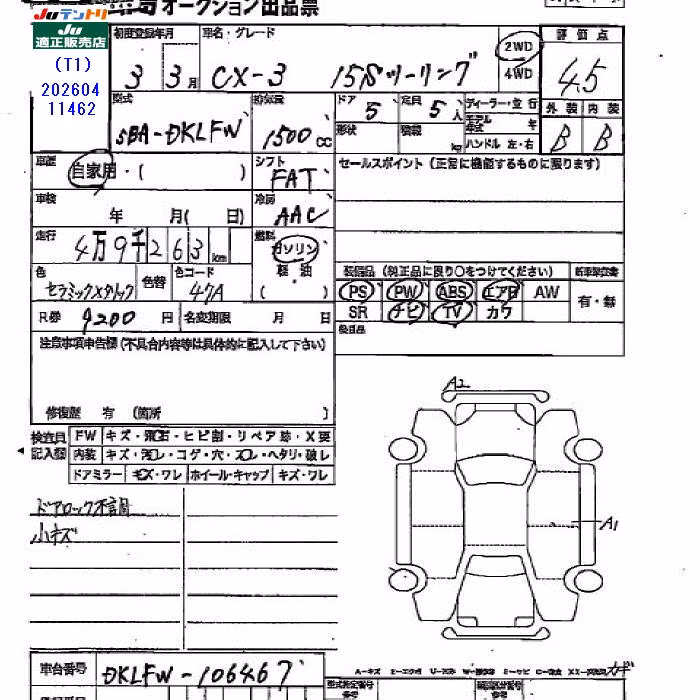 Juテントリ
Ju
適正販売店
(T1)
202604
11462
オークション出品票
初度登録年月
3 3月
車名・グレード
CX-3 15Sツーリング
2WD
4WD
評価点
4.5
外装 内装
B B
型式
5BA-DKLFW
排気量
1500cc
ドア
5
定員
5人
形状
積載
kg
ディーラー・並行
モデル年式 年
ハンドル 左・右
車歴
自家用・( )
シフト
FAT
セールスポイント(正常に機能するものに限ります)
車検
年 月( 日)
冷房
AAC
走行
4万9千263km
燃料
ガソリン
軽・油
( )
色
セラミックメタリック
色替
色コード
47A
装備品 (純正品に限り○をつけてください)
PS PW ABS エアB AW
SR ナビ TV カワ
新車保証書
有・無
後日品
R券 9200円
名変期限 月 日
注意事項申告欄(不具合内容等は具体的に記入して下さい)
修復歴 有(箇所 )
検査員記入欄
FW キズ・飛石・ヒビ割・リペア跡・X要
内装 キズ・汚レ・コゲ・穴・スレ・ヘタリ・破レ
ドアミラー キズ・ワレ ホイール・キャップ キズ・ワレ
ドアロック不調
小キズ
A2
A1
車台番号
DKLFW-106467